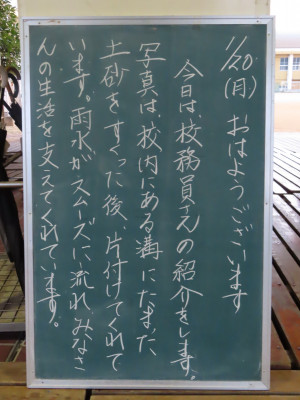 1/20(月) おはようございます
今日は、校務員さんの紹介をします。
写真は、校内にある溝にたまった
土砂をすくった後、片付けてくれて
います。雨水がスムーズに流れ、みなさ
んの生活を支えてくれています。